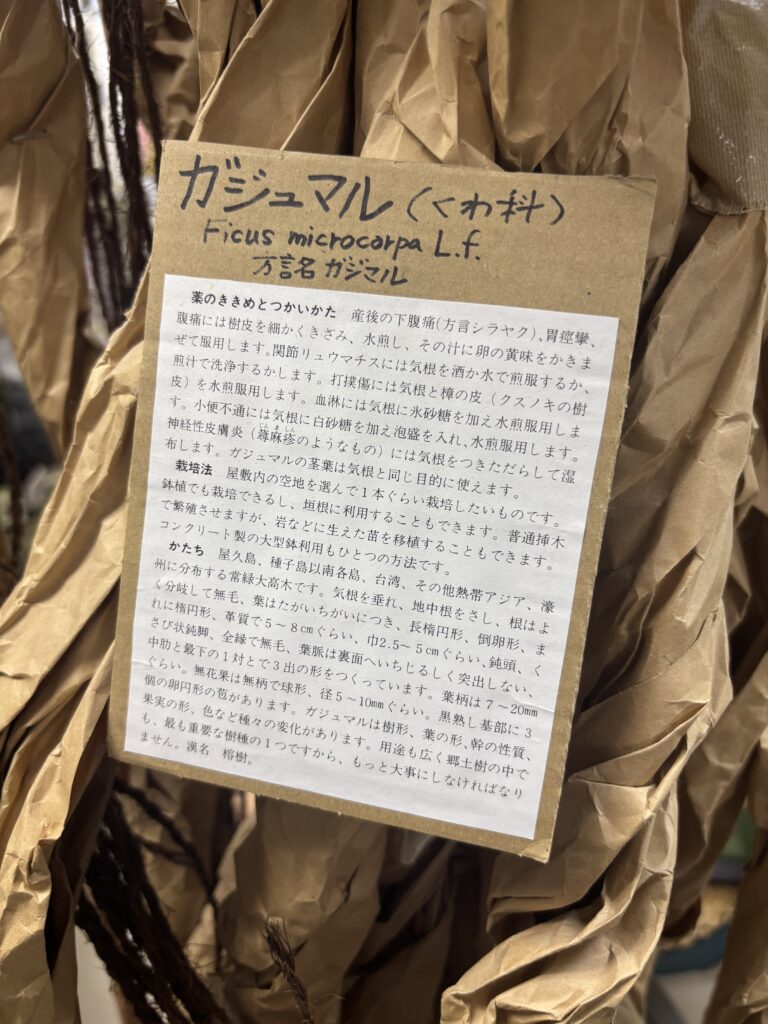 ガジュマル（くわ科）
Ficus microcarpa L.f.
方言名 ガジマル
薬のききめとつかいかた　産後の下腹痛(方言シラヤク)、胃痙攣、
腹痛には樹皮を細かくきざみ、水煎し、その汁に卵の黄味をかきま
ぜて服用します。関節リュウマチスには気根を酒か水で煎服するか、
煎汁で洗浄するかします。打撲傷には気根と樟の皮（クスノキの樹
皮）を水煎服用します。血淋には気根に氷砂糖を加え水煎服用しま
す。小便不通には気根に白砂糖を加え泡盛を入れ、水煎服用します。
神経性皮膚炎（蕁麻疹のようなもの）には気根をつきただらして湿
布します。ガジュマルの茎葉は気根と同じ目的に使えます。
栽培法　屋敷内の空地を選んで１本ぐらい栽培したいものです。
鉢植でも栽培できるし、垣根に利用することもできます。普通挿木
で繁殖させますが、岩などに生えた苗を移植することもできます。
コンクリート製の大型鉢利用もひとつの方法です。
かたち　屋久島、種子島以南各島、台湾、その他熱帯アジア、濠
州に分布する常緑大高木です。気根を垂れ、地中根をさし、根はよ
く分岐して無毛、葉はたがいちがいにつき、長楕円形、倒卵形、ま
れに楕円形、革質で５～８cmぐらい、巾2.5～５cmぐらい、鈍頭、く
さび状鈍脚、全縁で無毛、葉脈は裏面へいちじるしく突出しない、
中肋と最下の１対とで３出の形をつくっています。葉柄は７～20mm
ぐらい。無花果は無柄で球形、径５～10mmぐらい。黒熟し基部に３
個の卵円形の苞があります。ガジュマルは樹形、葉の形、幹の性質、
果実の形、色など種々の変化があります。用途も広く郷土樹の中で
も、最も重要な樹種の１つですから、もっと大事にしなければなり
ません。漢名　榕樹。